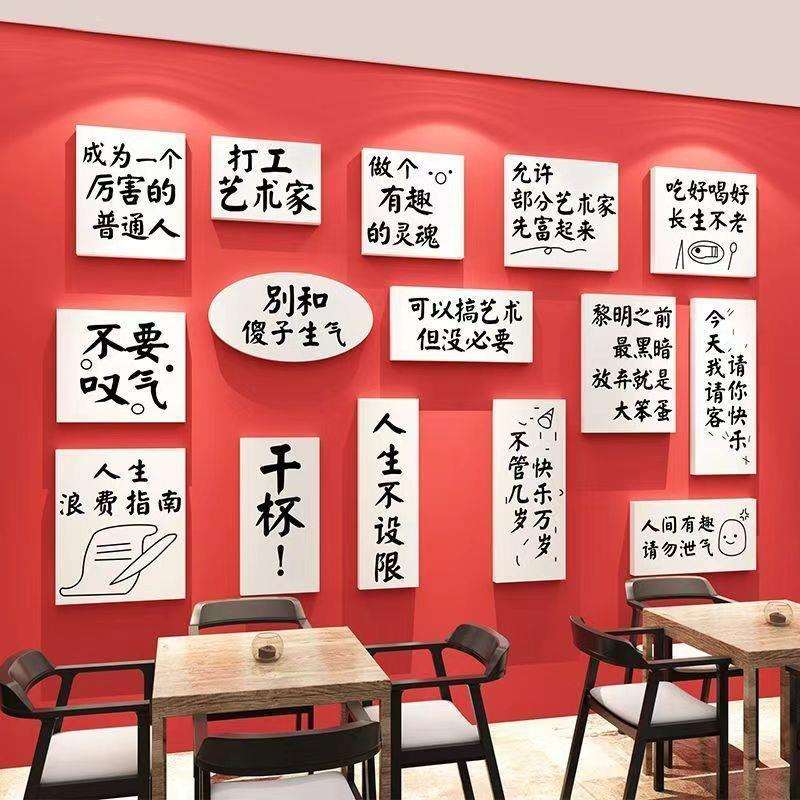 成为一个
厉害的
普通人
打工
艺术家
做个
有趣
的灵魂
允许
部分艺术家
先富起来
吃好喝好
长生不老
不要
叹气
别和
傻子生气
可以搞艺术
但没必要
黎明之前
最黑暗
放弃就是
大笨蛋
今天我请客
请你快乐
人生
浪费指南
干杯！
人生不设限
不管几岁
快乐万岁
人间有趣
请勿泄气